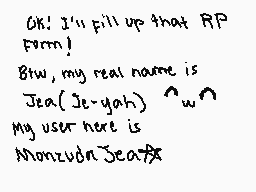 OK! I'll fill up that RP
form!
Btw, my real name is
Jea (Je-yah) ^w^
My user here is
MonzudaJea☆